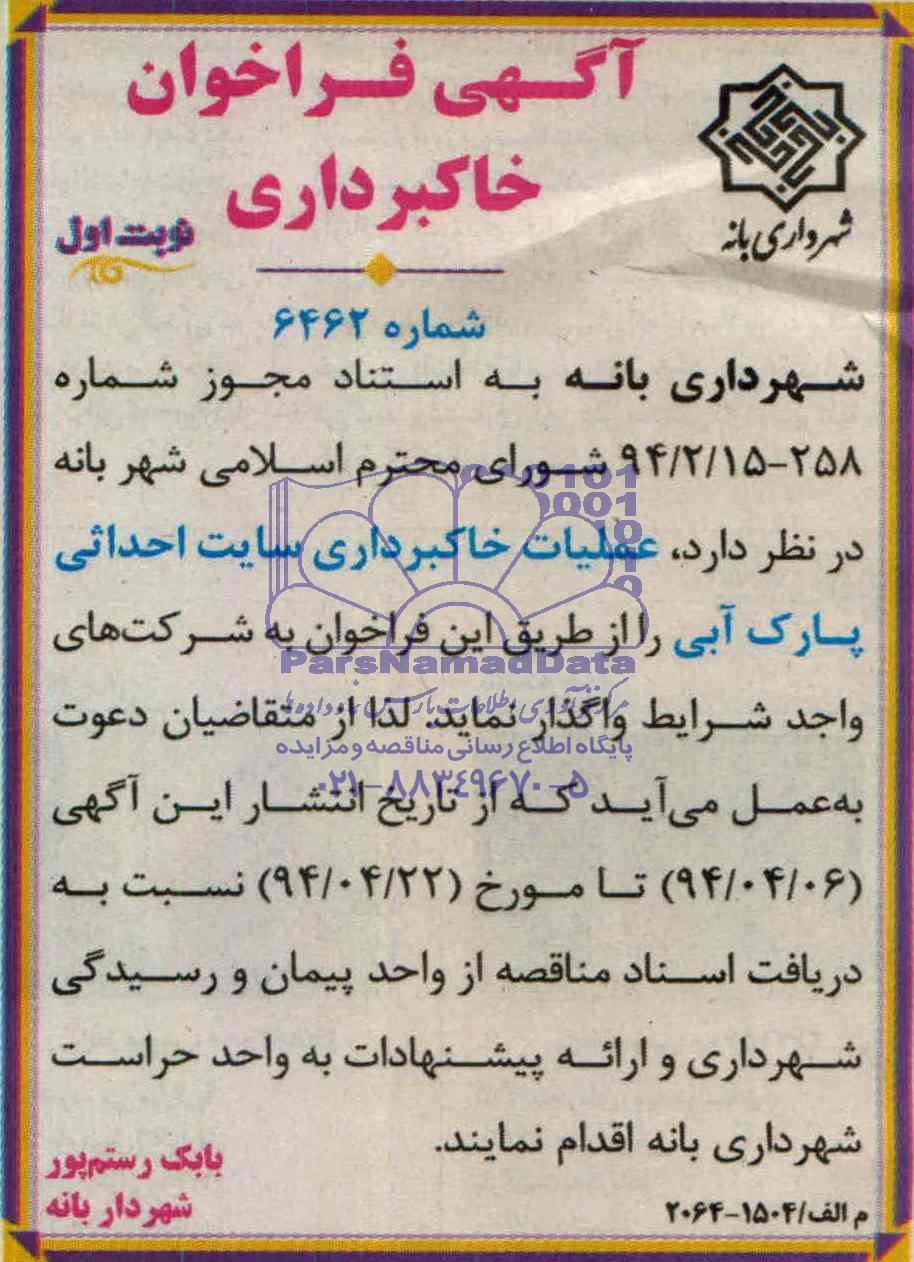 آگهی فراخوان
خاکبرداری
شهرداری بانه
نوبت اول
شماره ۶۴۶۲
شهرداری بانه به استناد مجوز شماره
۹۴/۲/۱۵-۲۵۸ شورای محترم اسلامی شهر بانه
در نظر دارد، عملیات خاکبرداری سایت احداثی
پارک آبی را از طریق این فراخوان به شرکت‌های
واجد شرایط واگذار نماید. لذا از متقاضیان دعوت
به‌عمل می‌آید که از تاریخ انتشار این آگهی
(۹۴/۰۴/۰۶) تا مورخ (۹۴/۰۴/۲۲) نسبت به
دریافت اسناد مناقصه از واحد پیمان و رسیدگی
شهرداری و ارائه پیشنهادات به واحد حراست
شهرداری بانه اقدام نمایند.
بابک رستم‌پور
شهردار بانه
م الف/۱۵۰۴-۲۰۶۴
ParsNamadData
پایگاه اطلاع رسانی مناقصه و مزایده
۰۲۱-۸۸۳٤۹۶۷۰-۵